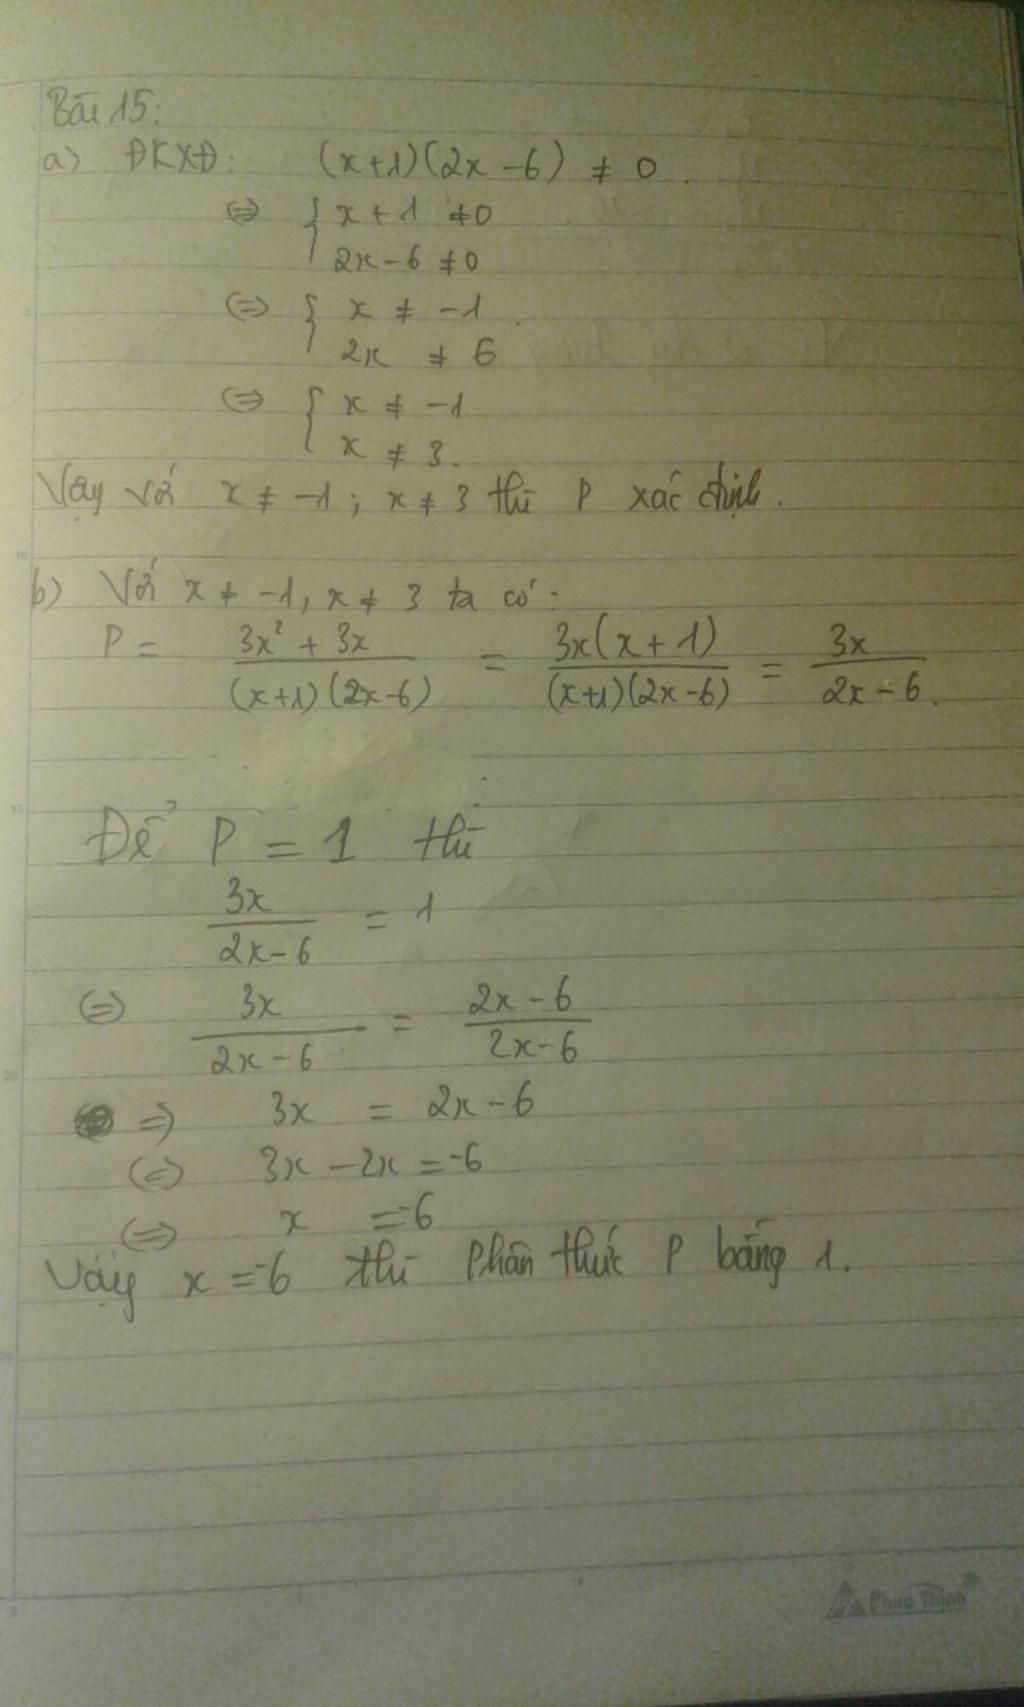 Bài 15:
a) ĐKXĐ: (x+1)(2x-6) ≠ 0.
⇔ { x + 1 ≠ 0
2x - 6 ≠ 0
⇔ { x ≠ -1
2x ≠ 6
⇔ { x ≠ -1
x ≠ 3.
Vậy với x ≠ -1; x ≠ 3 thì P xác định.
b) Với x ≠ -1, x ≠ 3 ta có:
P = (3x² + 3x)/((x+1)(2x-6)) = (3x(x+1))/((x+1)(2x-6)) = 3x/(2x-6).
Để P = 1 thì
3x/(2x-6) = 1
⇔ 3x/(2x-6) = (2x-6)/(2x-6)
⇒ 3x = 2x - 6
⇔ 3x - 2x = -6
⇔ x = -6
Vậy x = -6 thì phân thức P bằng 1.
Phuc Thinh